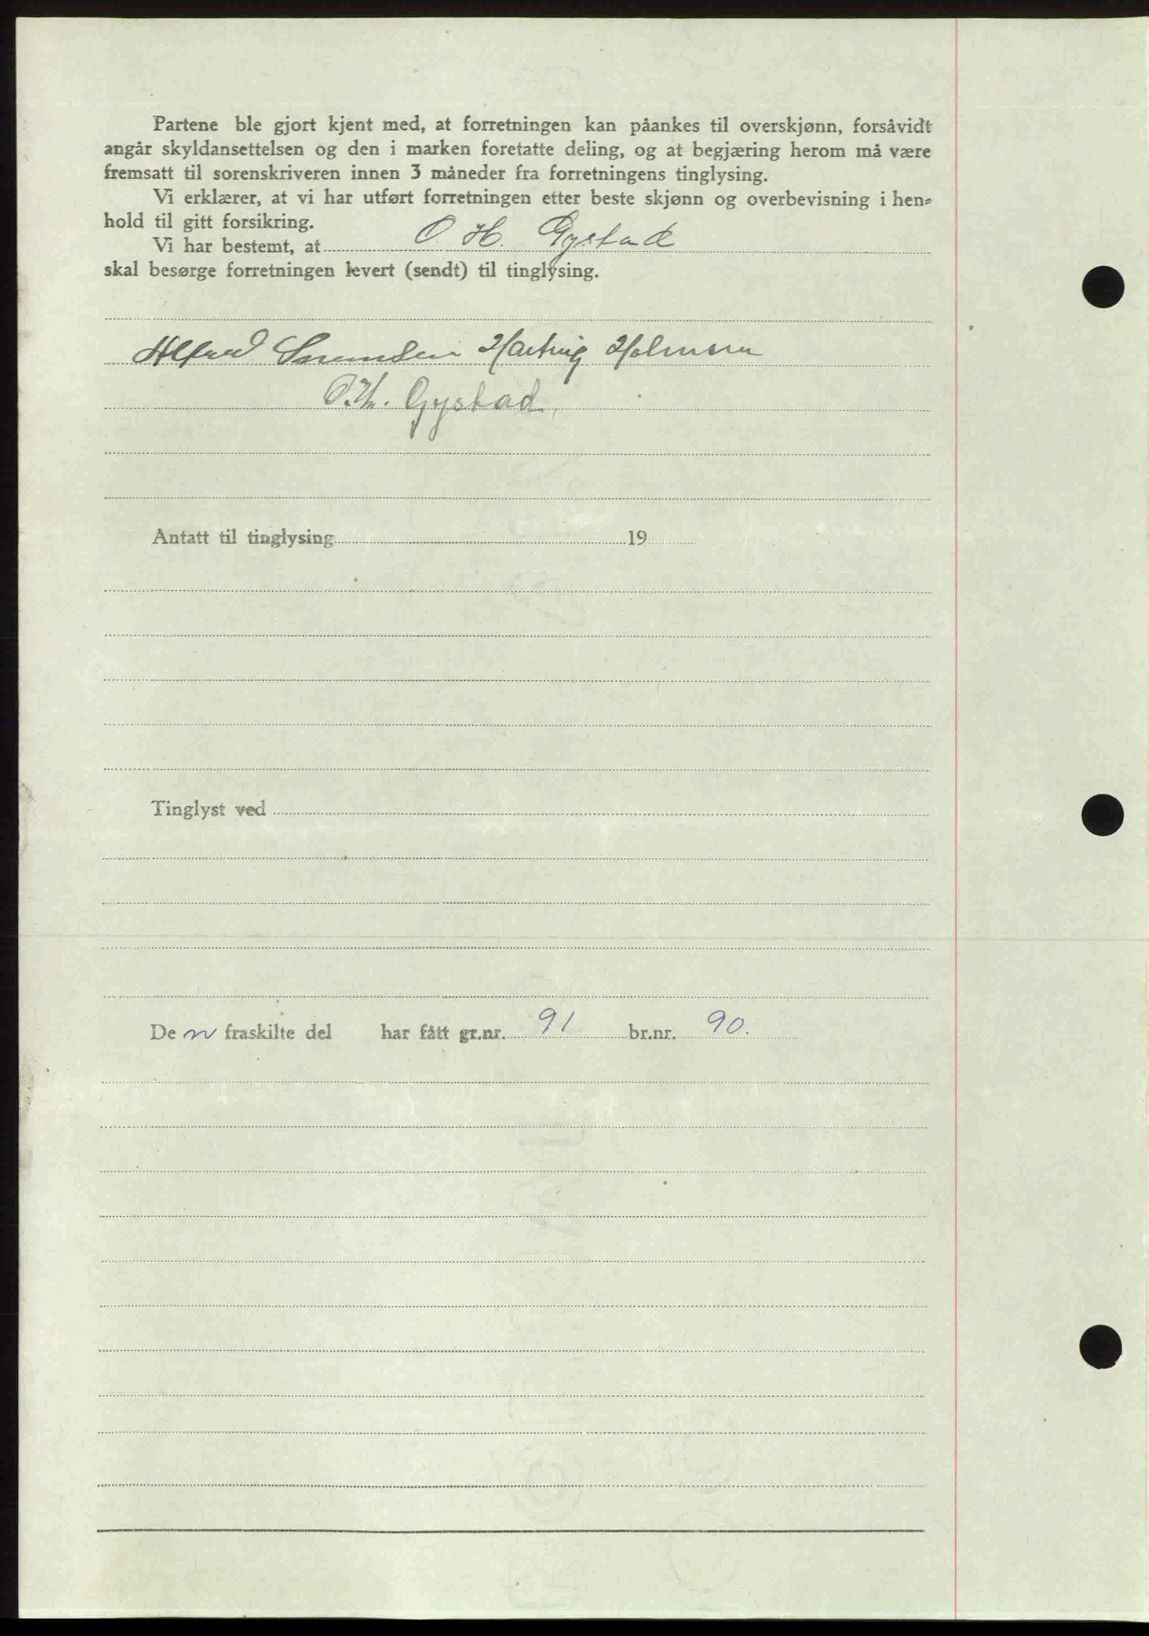 Partene ble gjort kjent med, at forretningen kan påankes til overskjønn, forsåvidt
angår skyldansettelsen og den i marken foretatte deling, og at begjæring herom må være
fremsatt til sorenskriveren innen 3 måneder fra forretningens tinglysing.
Vi erklærer, at vi har utført forretningen etter beste skjønn og overbevisning i hen-
hold til gitt forsikring.
Vi har bestemt, at O. H. Gystad
skal besørge forretningen levert (sendt) til tinglysing.
Alfred Hartvig Holmsen
O. H. Gystad
Antatt til tinglysing 19
Tinglyst ved
De n fraskilte del har fått gr.nr. 91 br.nr. 90.